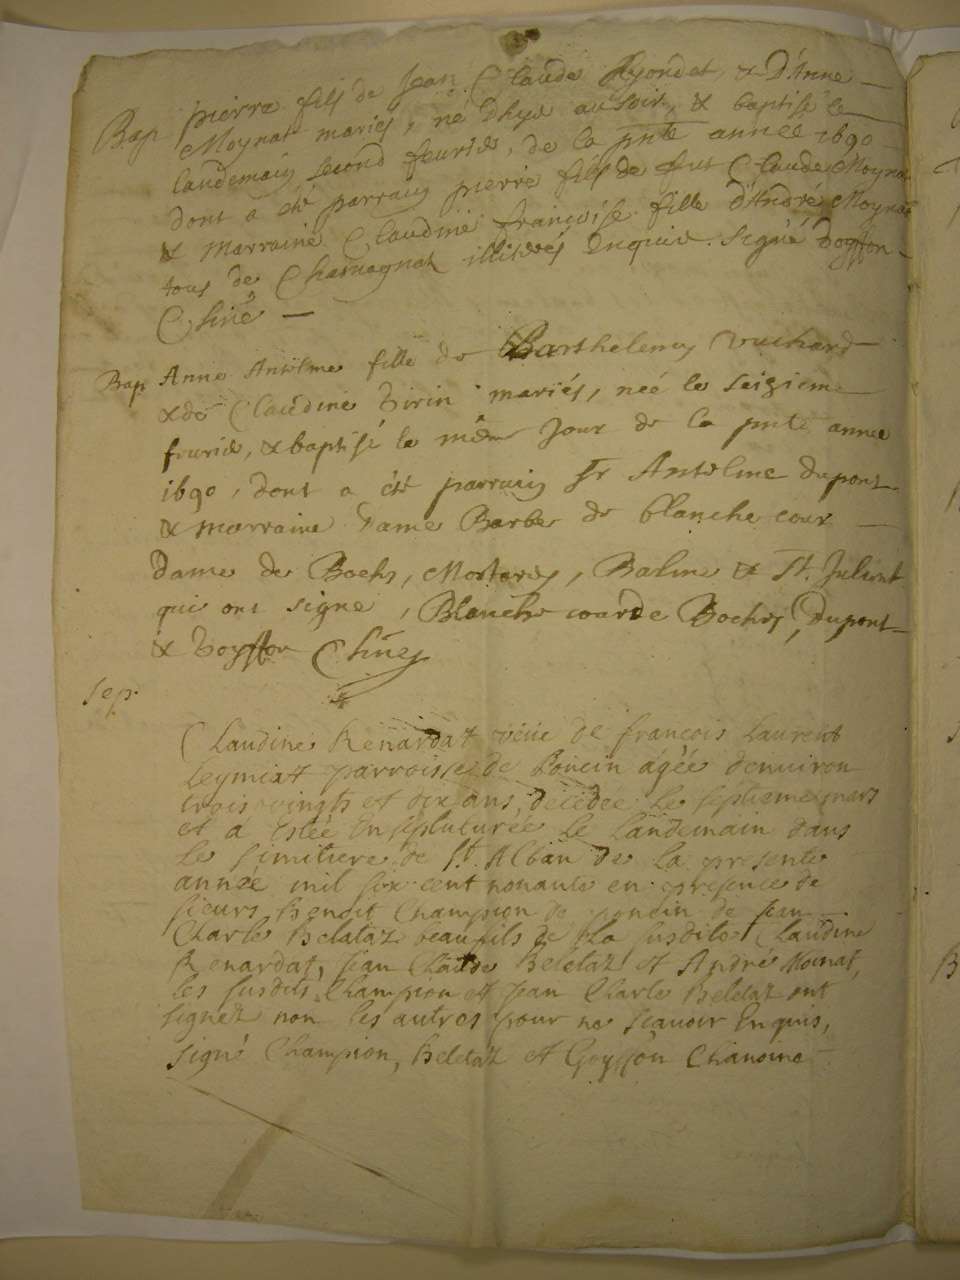 Bap pierre fils de Jean Claude Hyondet, & D'Anne
Moynat mariés, né Dhyer au soir, & baptisé le
landemain second feurier, de la pnte année 1690
dont a été parrain pierre fils de feu Claude Moynat
& Marraine Claudine françoise fille d'André Moynat
tous de Charnagnat illiterés Enquis. Signé
Chne
Bap Anne Antelme fille de Barthelemy Vuichard
& de Claudine Tirin mariés, née le seizieme
feurier, & baptisé le même Jour de la pnte année
1690, dont a été parrain Sr Antelme dupont
& marraine Dame Barbe de blanche cour
dame de Boehs, Mortarey, Balme & St. Julient
qui ont signe, Blanche cour de Boches, Dupont
& Goyffon Chne
Sep.
Claudine Renardat veüe de francois Laurent
Leymiat parroisse de Poncin agée denuiron
trois vingts et dix ans, décédée le septieme mars
et a Estée Ensepluturée le landemain dans
le simitiere de St. Alban de la presente
année mil six cent nonante en presence de
sieurs benoit Champion de poncin de Jean
Charle Beletaz beaufils de la susdite Claudine
Renardat, Jean Claude Beletaz et André Moinat,
les susdits Champion et Jean Charle Beletaz ont
signez non les autres pour ne scauoir Enquis,
signé Champion, beletaz et Goyffon Chanoine